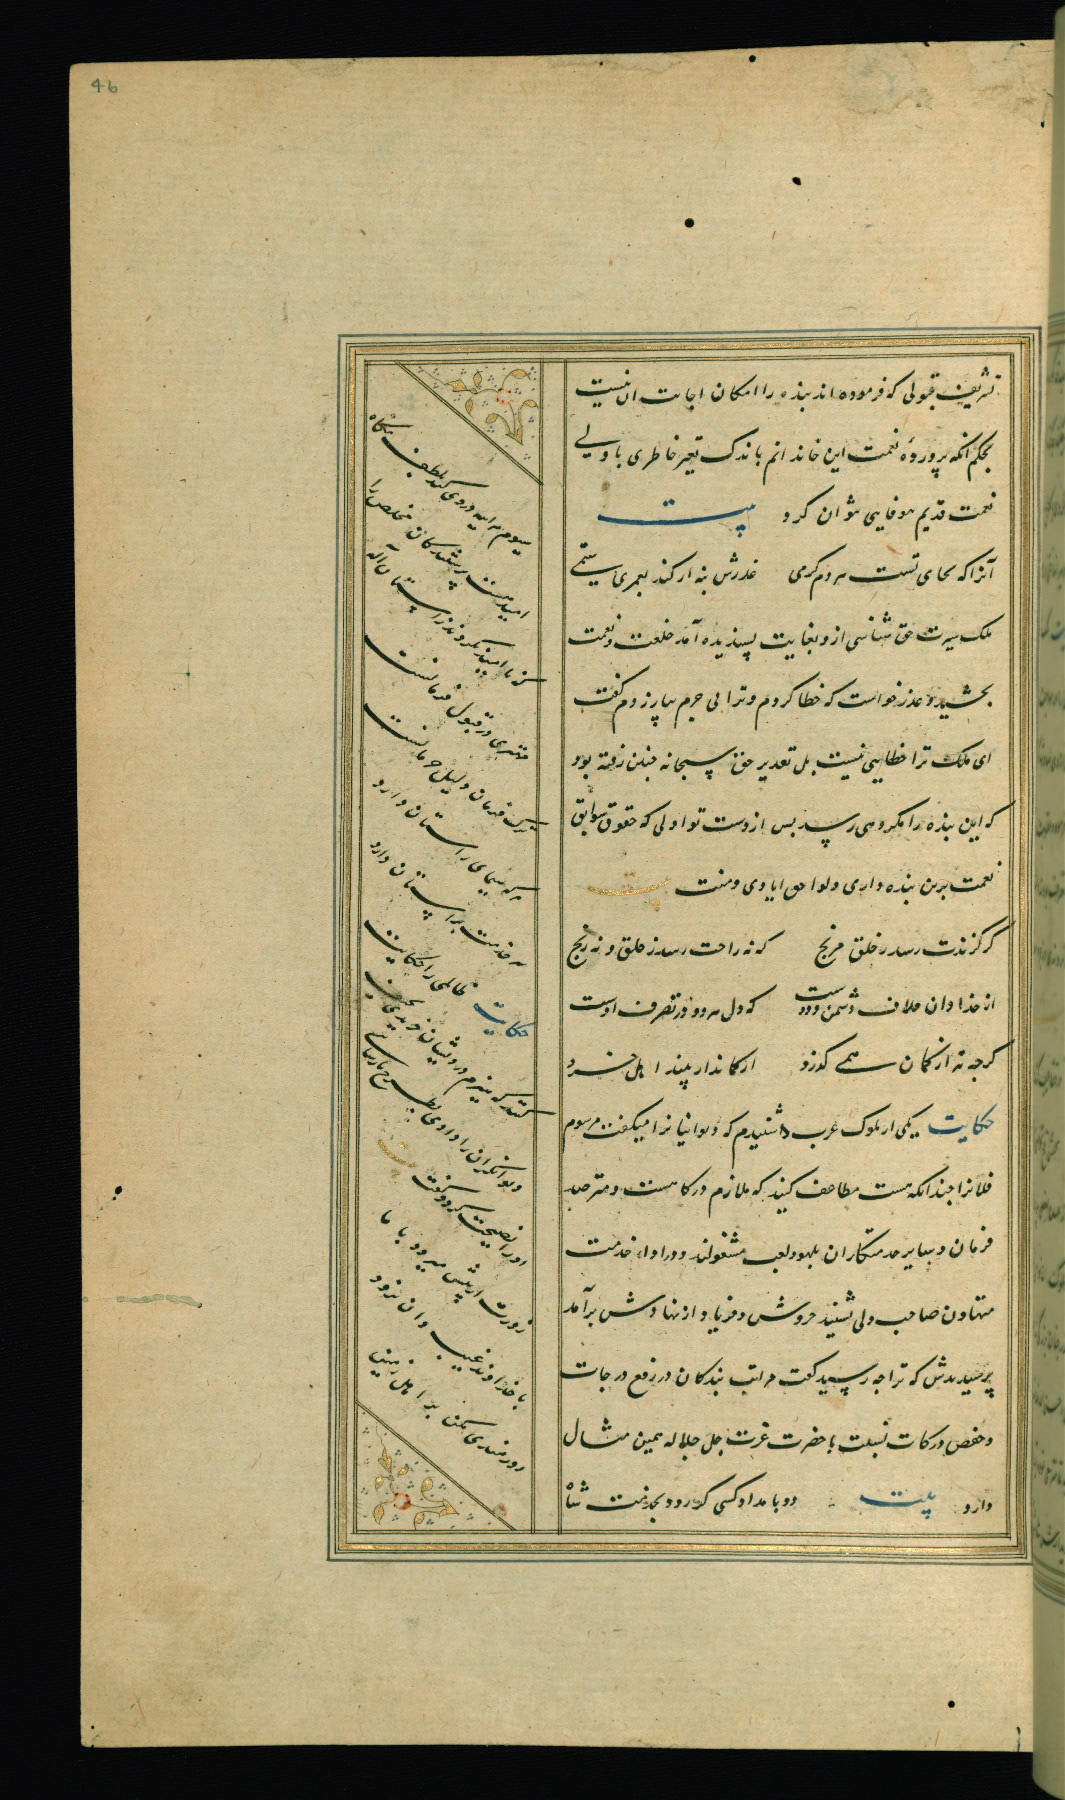 46
تشریف قبولی که فرموده اند بنده را امکان اجابت آن نیست
بحکم آنکه پرورده نعمت این خاندانم باندک تغیر خاطری با ولی
نعمت قدیم بیوفایی نتوان کرد بیت
آنرا که بجای تست هر دم کرمی عذرش بنه ار کند بعمری ستمی
ملک سیرت حق شناسی ازو بغایت پسندیده آمد خلعت و نعمت
بخشید و عذر خواست که خطا کردم و ترا بی جرم بیازردم گفت
ای ملک ترا خطایی نیست بل تقدیر حق سبحانه چنین رفته بود
که این بنده را مکروهی رسد پس از دست تو اولی که حقوق سوابق
نعمت برین بنده داری و لواحق ایادی و منت بیت
گر گزندت رسد ز خلق مرنج که نه راحت رسد ز خلق و نه رنج
از خدا دان خلاف دشمن و دوست که دل هر دو در تصرف اوست
گرچه تیر از کمان همی گذرد از کماندار بیند اهل خرد
حکایت یکی از ملوک عرب را شنیدم که دیوانیانرا میگفت مرسوم
فلانرا چندانکه هست مضاعف کنید که ملازم درگاهست و مترصد
فرمان و سایر خدمتکاران بلهو و لعب مشغولند و در اداء خدمت
متهاون صاحب دلی شنید خروش و فریاد از نهادش برآمد
پرسیدندش که ترا چه رسید گفت مراتب بندگان در رفع درجات
و خفض درکات نسبت با حضرت عزت جل جلاله همین مثال
دارد بیت دو بامداد کسی گر رود بخدمت شاه
سیوم هر آینه در وی کند بلطف نگاه
امیدست پرستندگان مخلص را
که ناامید نگردند ز آستان اله
مهتری در قبول فرمانست
ترک فرمان دلیل حرمانست
هر که سیمای راستان دارد
سر خدمت بر آستان دارد
حکایت ظالمی را حکایت
کنند که هیزم درویشان خریدی بحیف
و توانگران را دادی بطرح
او را نصیحت کرد و گفت بیت
زورت ار پیش میرود با ما
با خداوند غیب دان نرود
زورمندی مکن بر اهل زمین